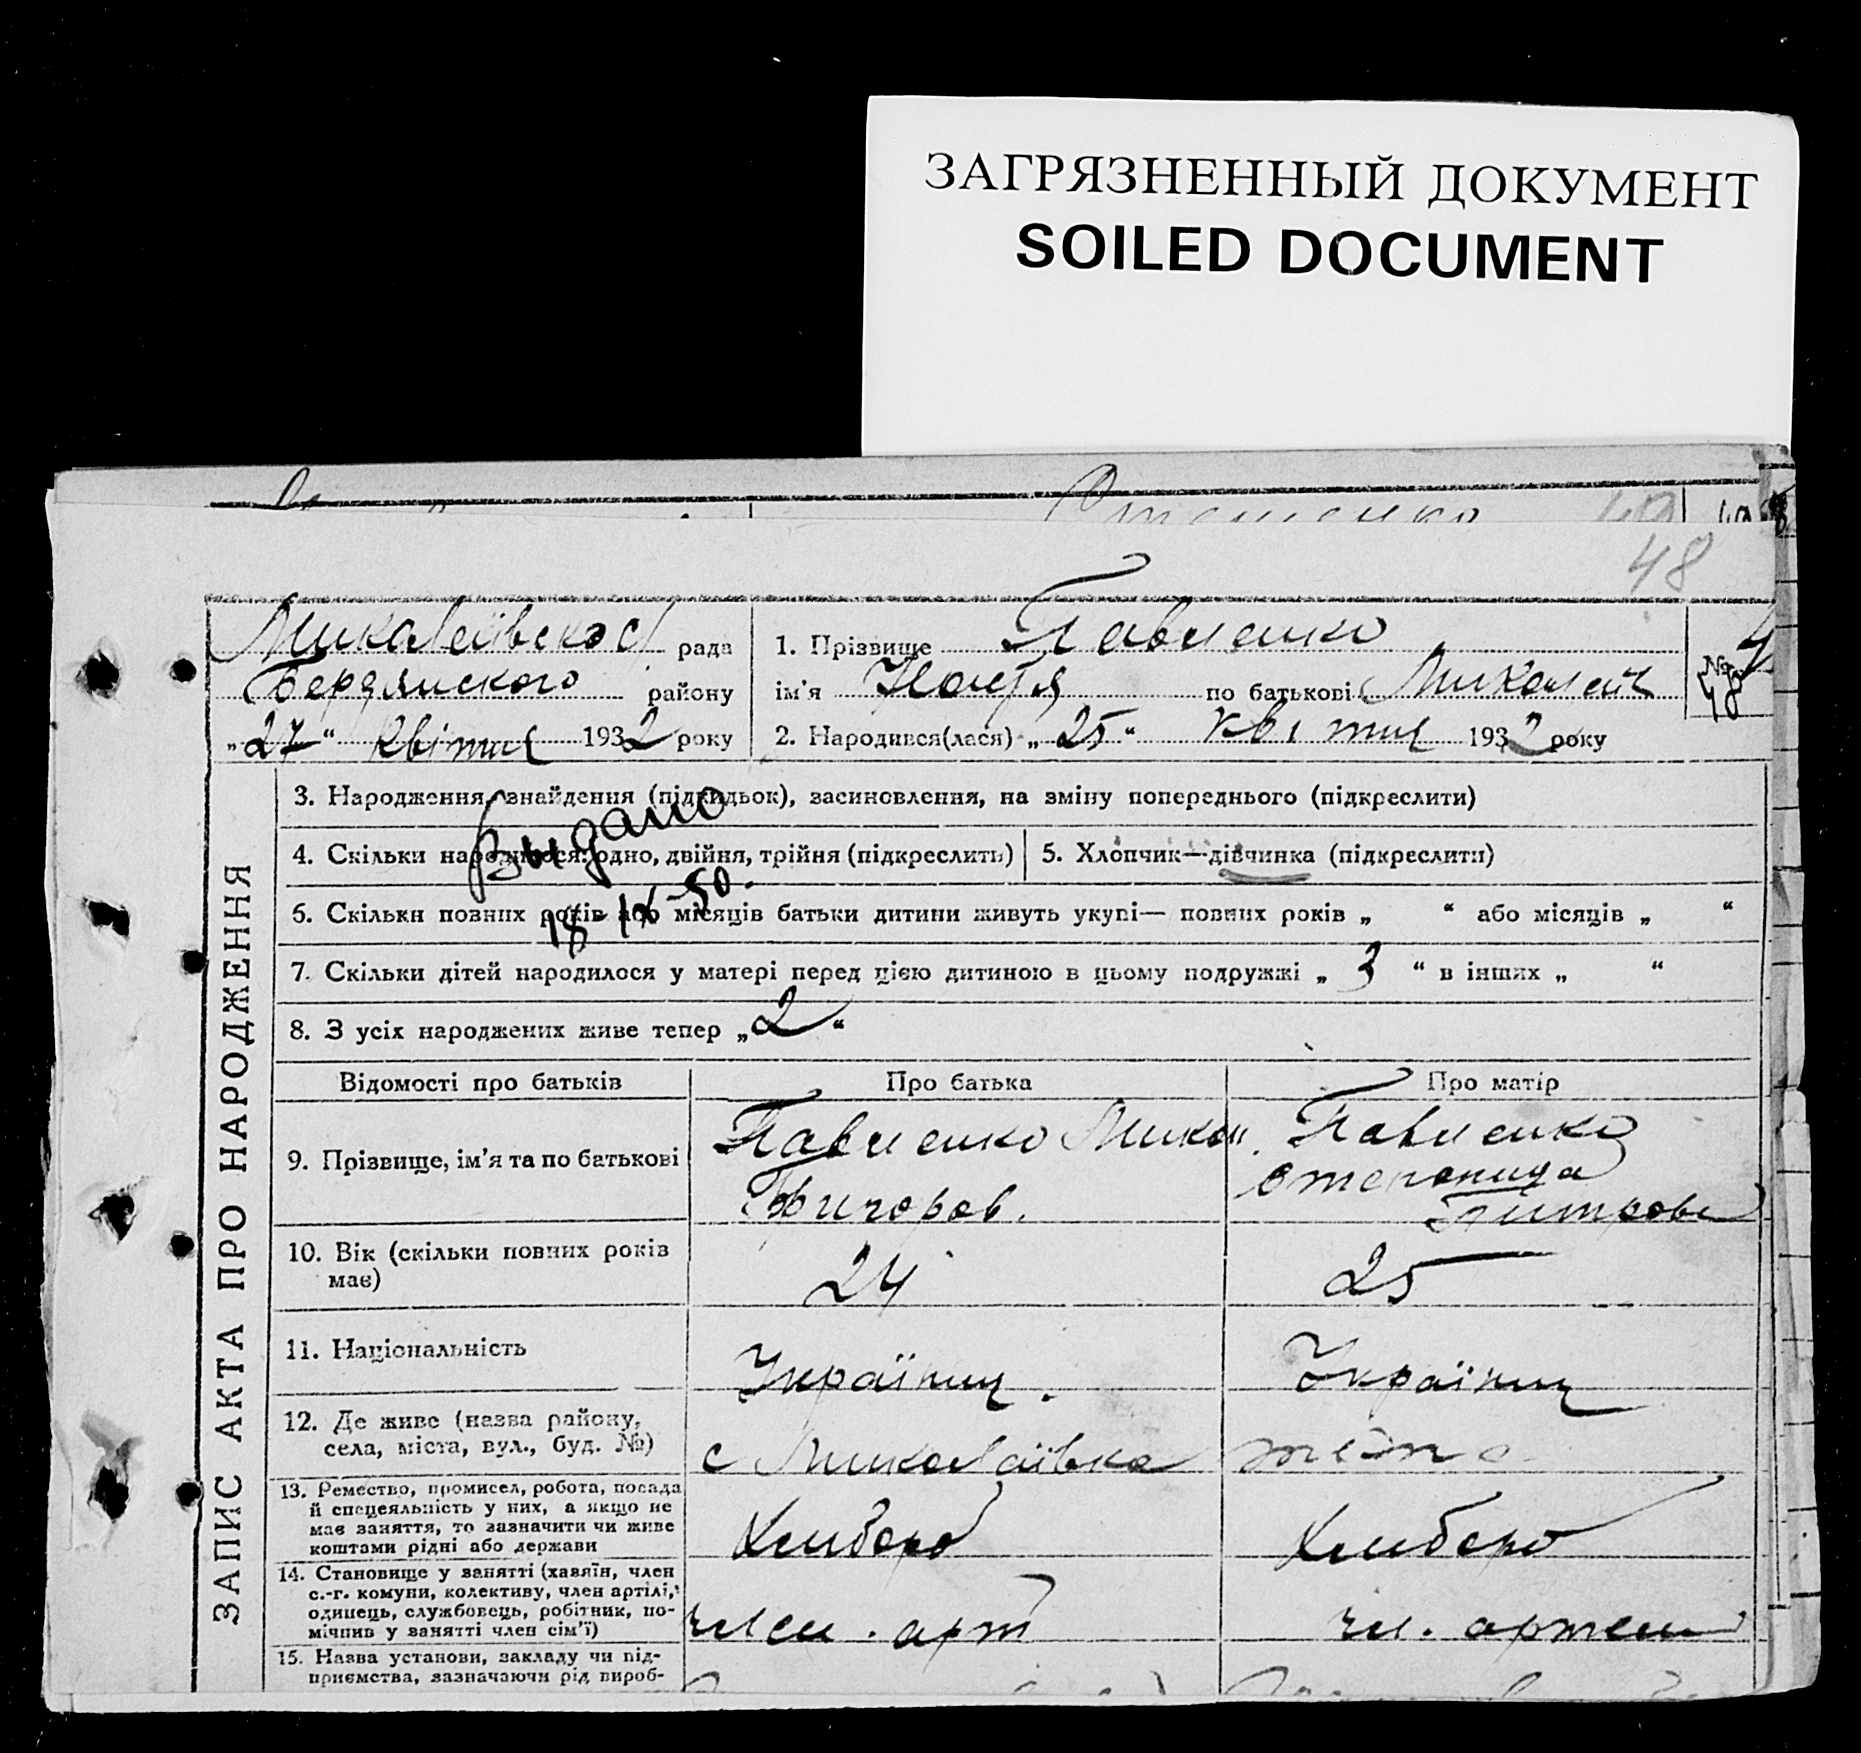 ЗАГРЯЗНЕННЫЙ ДОКУМЕНТ
SOILED DOCUMENT
48
рада
Бердянского району
„27“ квітня 1932 року
1. Прізвище Павленко
ім'я Надія по батькові Микол
2. Народився(лася) „25“ квітня 1932 року
№ 48
ЗАПИС АКТА ПРО НАРОДЖЕННЯ
3. Народження, знайдення (підкидьок), засиновлення, на зміну попереднього (підкреслити)
Выдано
4. Скільки народилося: одно, двійня, трійня (підкреслить)
5. Хлопчик—дівчинка (підкреслити)
18 IX-50.
6. Скільки повних років або місяців батьки дитини живуть укупі— повних років „ “ або місяців „ “
7. Скільки дітей народилося у матері перед цією дитиною в цьому подружжі „ 3 “ в інших „ “
8. З усіх народжених живе тепер „2“
Відомості про батьків Про батька Про матір
9. Прізвище, ім'я та по батькові
Павленко Микол
Григоров.
Павленко
10. Вік (скільки повних років має) 24 25
11. Національність Українц. Українц
12. Де живе (назва району,
села, міста, вул., буд. №)
с Миколаївка
13. Ремество, промисел, робота, посада
й спецеяльність у них, а якщо не
має заняття, то зазначити чи живе
коштами рідні або держави
Хлібороб Хлібороб
14. Становище у занятті (хазяїн, член
с.-г. комуни, колективу, член артілі,
одинець, службовець, робітник, по-
мічник у занятті член сім'ї)
член. арт чл. артелі
15. Назва установи, закладу чи під-
приємства, зазначаючи рід вироб-